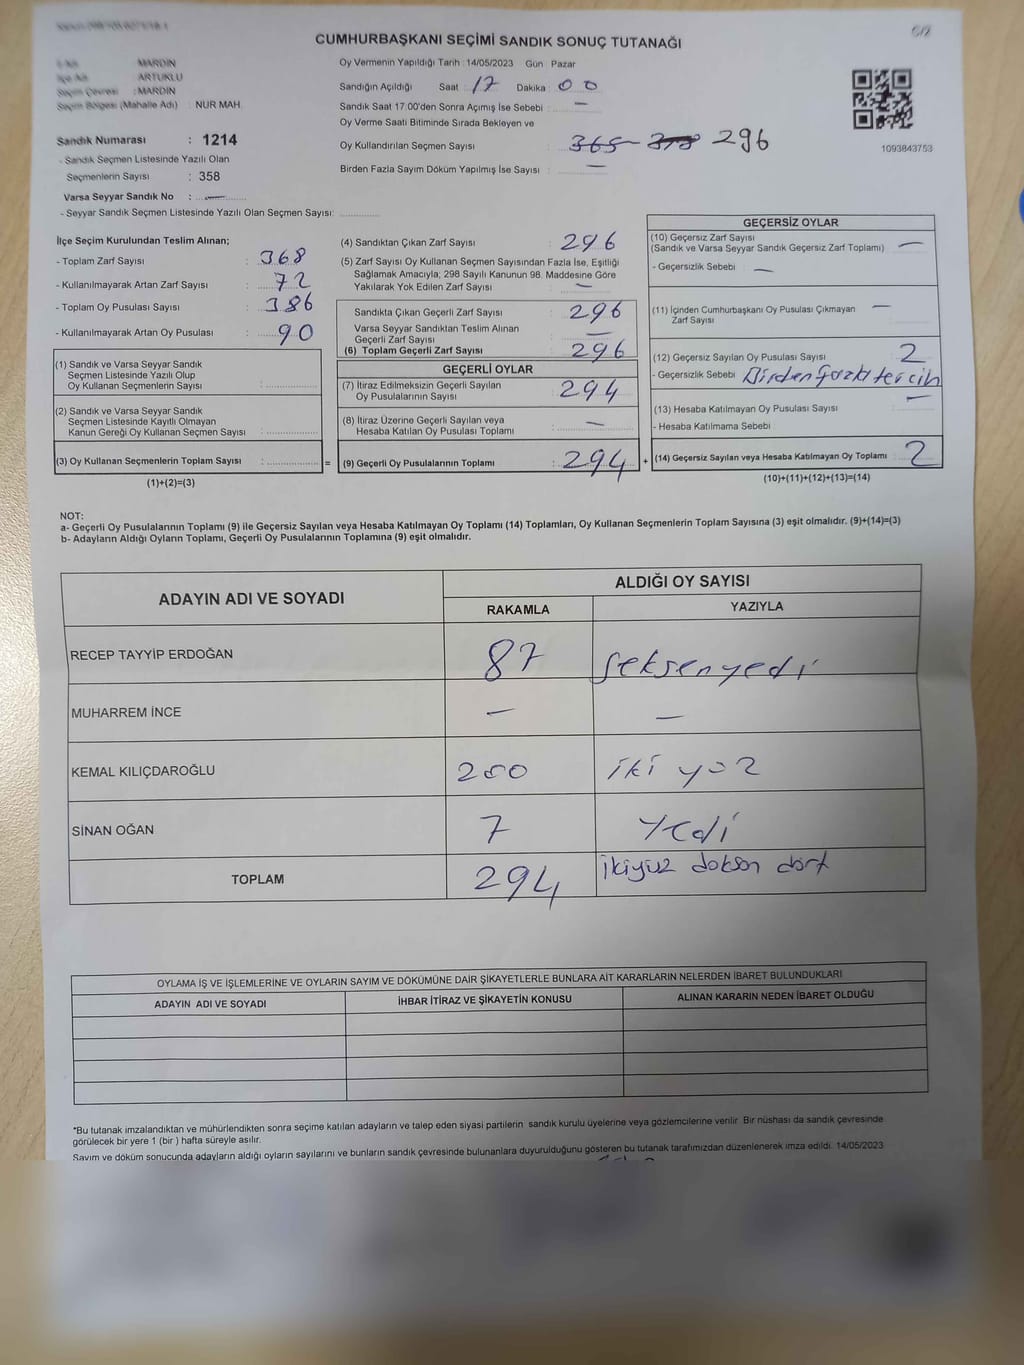 CUMHURBAŞKANI SEÇİMİ SANDIK SONUÇ TUTANAĞI
MARDİN
İlçe Adı ARTUKLU
Seçim Çevresi : MARDİN
Seçim Bölgesi (Mahalle Adı) : NUR MAH.
Sandık Numarası : 1214
- Sandık Seçmen Listesinde Yazılı Olan
Seçmenlerin Sayısı : 358
Varsa Seyyar Sandık No : —
- Seyyar Sandık Seçmen Listesinde Yazılı Olan Seçmen Sayısı:
Oy Vermenin Yapıldığı Tarih : 14/05/2023 Gün : Pazar
Sandığın Açıldığı Saat : 17 Dakika : 00
Sandık Saat 17:00'den Sonra Açımış İse Sebebi : —
Oy Verme Saati Bitiminde Sırada Bekleyen ve
Oy Kullandırılan Seçmen Sayısı : 296
Birden Fazla Sayım Döküm Yapılmış İse Sayısı : —
1093843753
İlçe Seçim Kurulundan Teslim Alınan;
- Toplam Zarf Sayısı : 368
- Kullanılmayarak Artan Zarf Sayısı : 72
- Toplam Oy Pusulası Sayısı : 386
- Kullanılmayarak Artan Oy Pusulası : 90
(1) Sandık ve Varsa Seyyar Sandık
Seçmen Listesinde Yazılı Olup
Oy Kullanan Seçmenlerin Sayısı :
(2) Sandık ve Varsa Seyyar Sandık
Seçmen Listesinde Kayıtlı Olmayan
Kanun Gereği Oy Kullanan Seçmen Sayısı :
(3) Oy Kullanan Seçmenlerin Toplam Sayısı : =
(1)+(2)=(3)
(4) Sandıktan Çıkan Zarf Sayısı : 296
(5) Zarf Sayısı Oy Kullanan Seçmen Sayısından Fazla İse, Eşitliği
Sağlamak Amacıyla; 298 Sayılı Kanunun 98. Maddesine Göre
Yakılarak Yok Edilen Zarf Sayısı : —
Sandıkta Çıkan Geçerli Zarf Sayısı : 296
Varsa Seyyar Sandıktan Teslim Alınan
Geçerli Zarf Sayısı : —
(6) Toplam Geçerli Zarf Sayısı : 296
GEÇERLİ OYLAR
(7) İtiraz Edilmeksizin Geçerli Sayılan
Oy Pusulalarının Sayısı : 294
(8) İtiraz Üzerine Geçerli Sayılan veya
Hesaba Katılan Oy Pusulası Toplamı : —
(9) Geçerli Oy Pusulalarının Toplamı : 294 +
GEÇERSİZ OYLAR
(10) Geçersiz Zarf Sayısı
(Sandık ve Varsa Seyyar Sandık Geçersiz Zarf Toplamı) —
- Geçersizlik Sebebi : —
(11) İçinden Cumhurbaşkanı Oy Pusulası Çıkmayan
Zarf Sayısı —
(12) Geçersiz Sayılan Oy Pusulası Sayısı : 2
- Geçersizlik Sebebi Birden fazla tercih
(13) Hesaba Katılmayan Oy Pusulası Sayısı : —
- Hesaba Katılmama Sebebi :
(14) Geçersiz Sayılan veya Hesaba Katılmayan Oy Toplamı : 2
(10)+(11)+(12)+(13)=(14)
NOT:
a- Geçerli Oy Pusulalarının Toplamı (9) ile Geçersiz Sayılan veya Hesaba Katılmayan Oy Toplamı (14) Toplamları, Oy Kullanan Seçmenlerin Toplam Sayısına (3) eşit olmalıdır. (9)+(14)=(3)
b- Adayların Aldığı Oyların Toplamı, Geçerli Oy Pusulalarının Toplamına (9) eşit olmalıdır.
ADAYIN ADI VE SOYADI ALDIĞI OY SAYISI
RAKAMLA YAZIYLA
RECEP TAYYİP ERDOĞAN 87 seksenyedi
MUHARREM İNCE — —
KEMAL KILIÇDAROĞLU 200 iki yüz
SİNAN OĞAN 7 Yedi
TOPLAM 294 ikiyüz doksan dört
OYLAMA İŞ VE İŞLEMLERİNE VE OYLARIN SAYIM VE DÖKÜMÜNE DAİR ŞİKAYETLERLE BUNLARA AİT KARARLARIN NELERDEN İBARET BULUNDUKLARI
ADAYIN ADI VE SOYADI İHBAR İTİRAZ VE ŞİKAYETİN KONUSU ALINAN KARARIN NEDEN İBARET OLDUĞU
*Bu tutanak imzalandıktan ve mühürlendikten sonra seçime katılan adayların ve talep eden siyasi partilerin sandık kurulu üyelerine veya gözlemcilerine verilir. Bir nüshası da sandık çevresinde
görülecek bir yere 1 (bir ) hafta süreyle asılır.
Sayım ve döküm sonucunda adayların aldığı oyların sayılarını ve bunların sandık çevresinde bulunanlara duyurulduğunu gösteren bu tutanak tarafımızdan düzenlenerek imza edildi. 14/05/2023